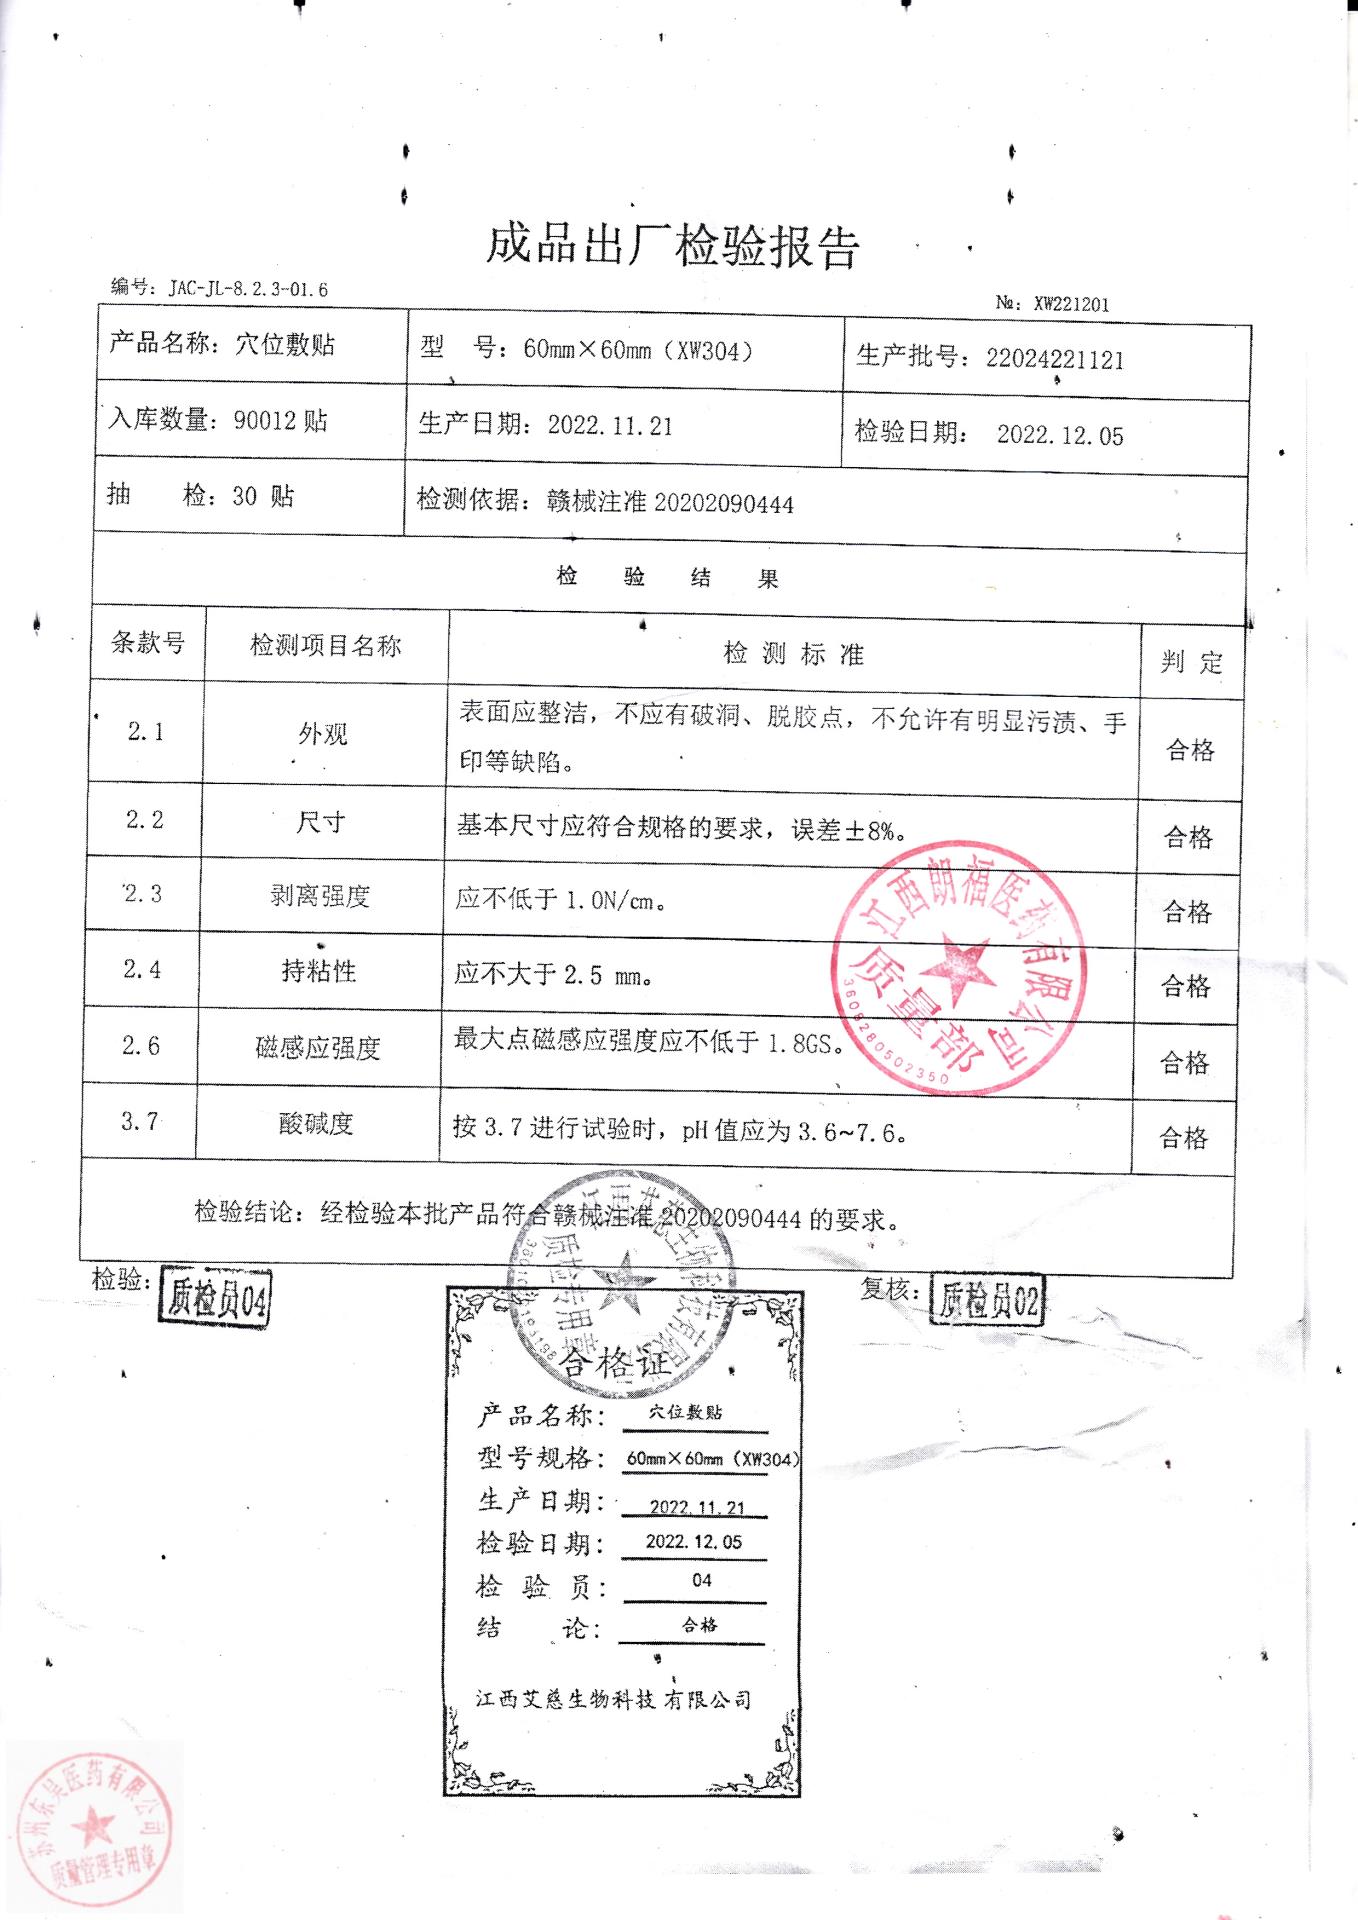 成品出厂检验报告
编号：JAC-JL-8.2.3-01.6
№：XW221201
产品名称：穴位敷贴
型 号：60mm×60mm（XW304）
生产批号：22024221121
入库数量：90012贴
生产日期：2022.11.21
检验日期： 2022.12.05
抽 检：30 贴
检测依据：赣械注准 20202090444
检 验 结 果
条款号
检测项目名称
检 测 标 准
判 定
2.1
外观
表面应整洁，不应有破洞、脱胶点，不允许有明显污渍、手
印等缺陷。
合格
2.2
尺寸
基本尺寸应符合规格的要求，误差±8%。
合格
2.3
剥离强度
应不低于 1.0N/cm。
合格
2.4
持粘性
应不大于 2.5 mm。
合格
2.6
磁感应强度
最大点磁感应强度应不低于 1.8GS。
合格
3.7
酸碱度
按 3.7 进行试验时，pH 值应为 3.6~7.6。
合格
江西朗福医药有限公司
质量部
3609280502350
检验结论：经检验本批产品符合赣械注准 20202090444 的要求。
检验：
质检员04
复核：
质检员02
质检专用章
合格证
产品名称： 穴位敷贴
型号规格： 60mm×60mm（XW304）
生产日期： 2022.11.21
检验日期： 2022.12.05
检 验 员： 04
结 论： 合格
江西艾慈生物科技有限公司
苏州东吴医药有限公司
质量管理专用章